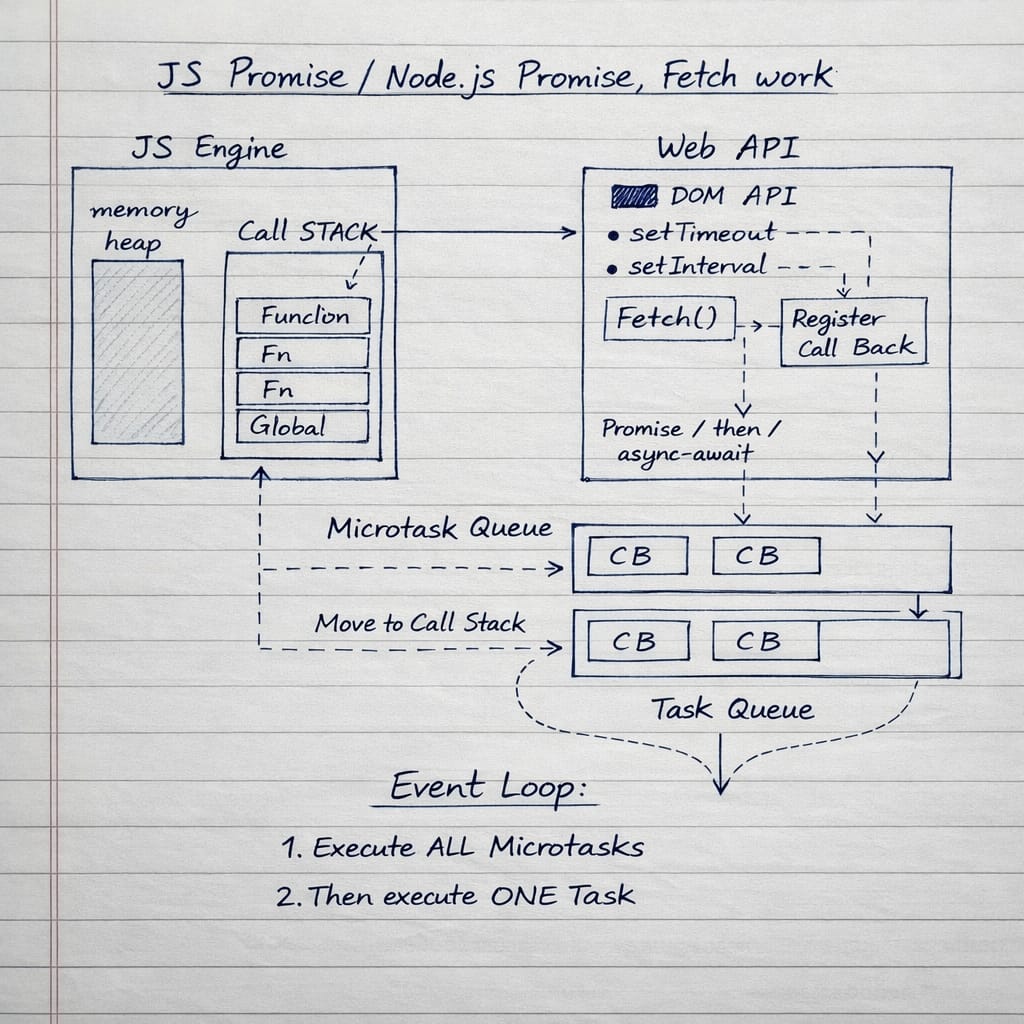 JS Promise / Node.js Promise, Fetch work
JS Engine
memory
heap
Call STACK
Function
Fn
Fn
Global
Web API
DOM API
• setTimeout
• setInterval
Fetch()
Register
Call Back
Promise / then /
async-await
Microtask Queue
CB CB
Move to Call Stack
CB CB
Task Queue
Event Loop:
1. Execute ALL Microtasks
2. Then execute ONE Task